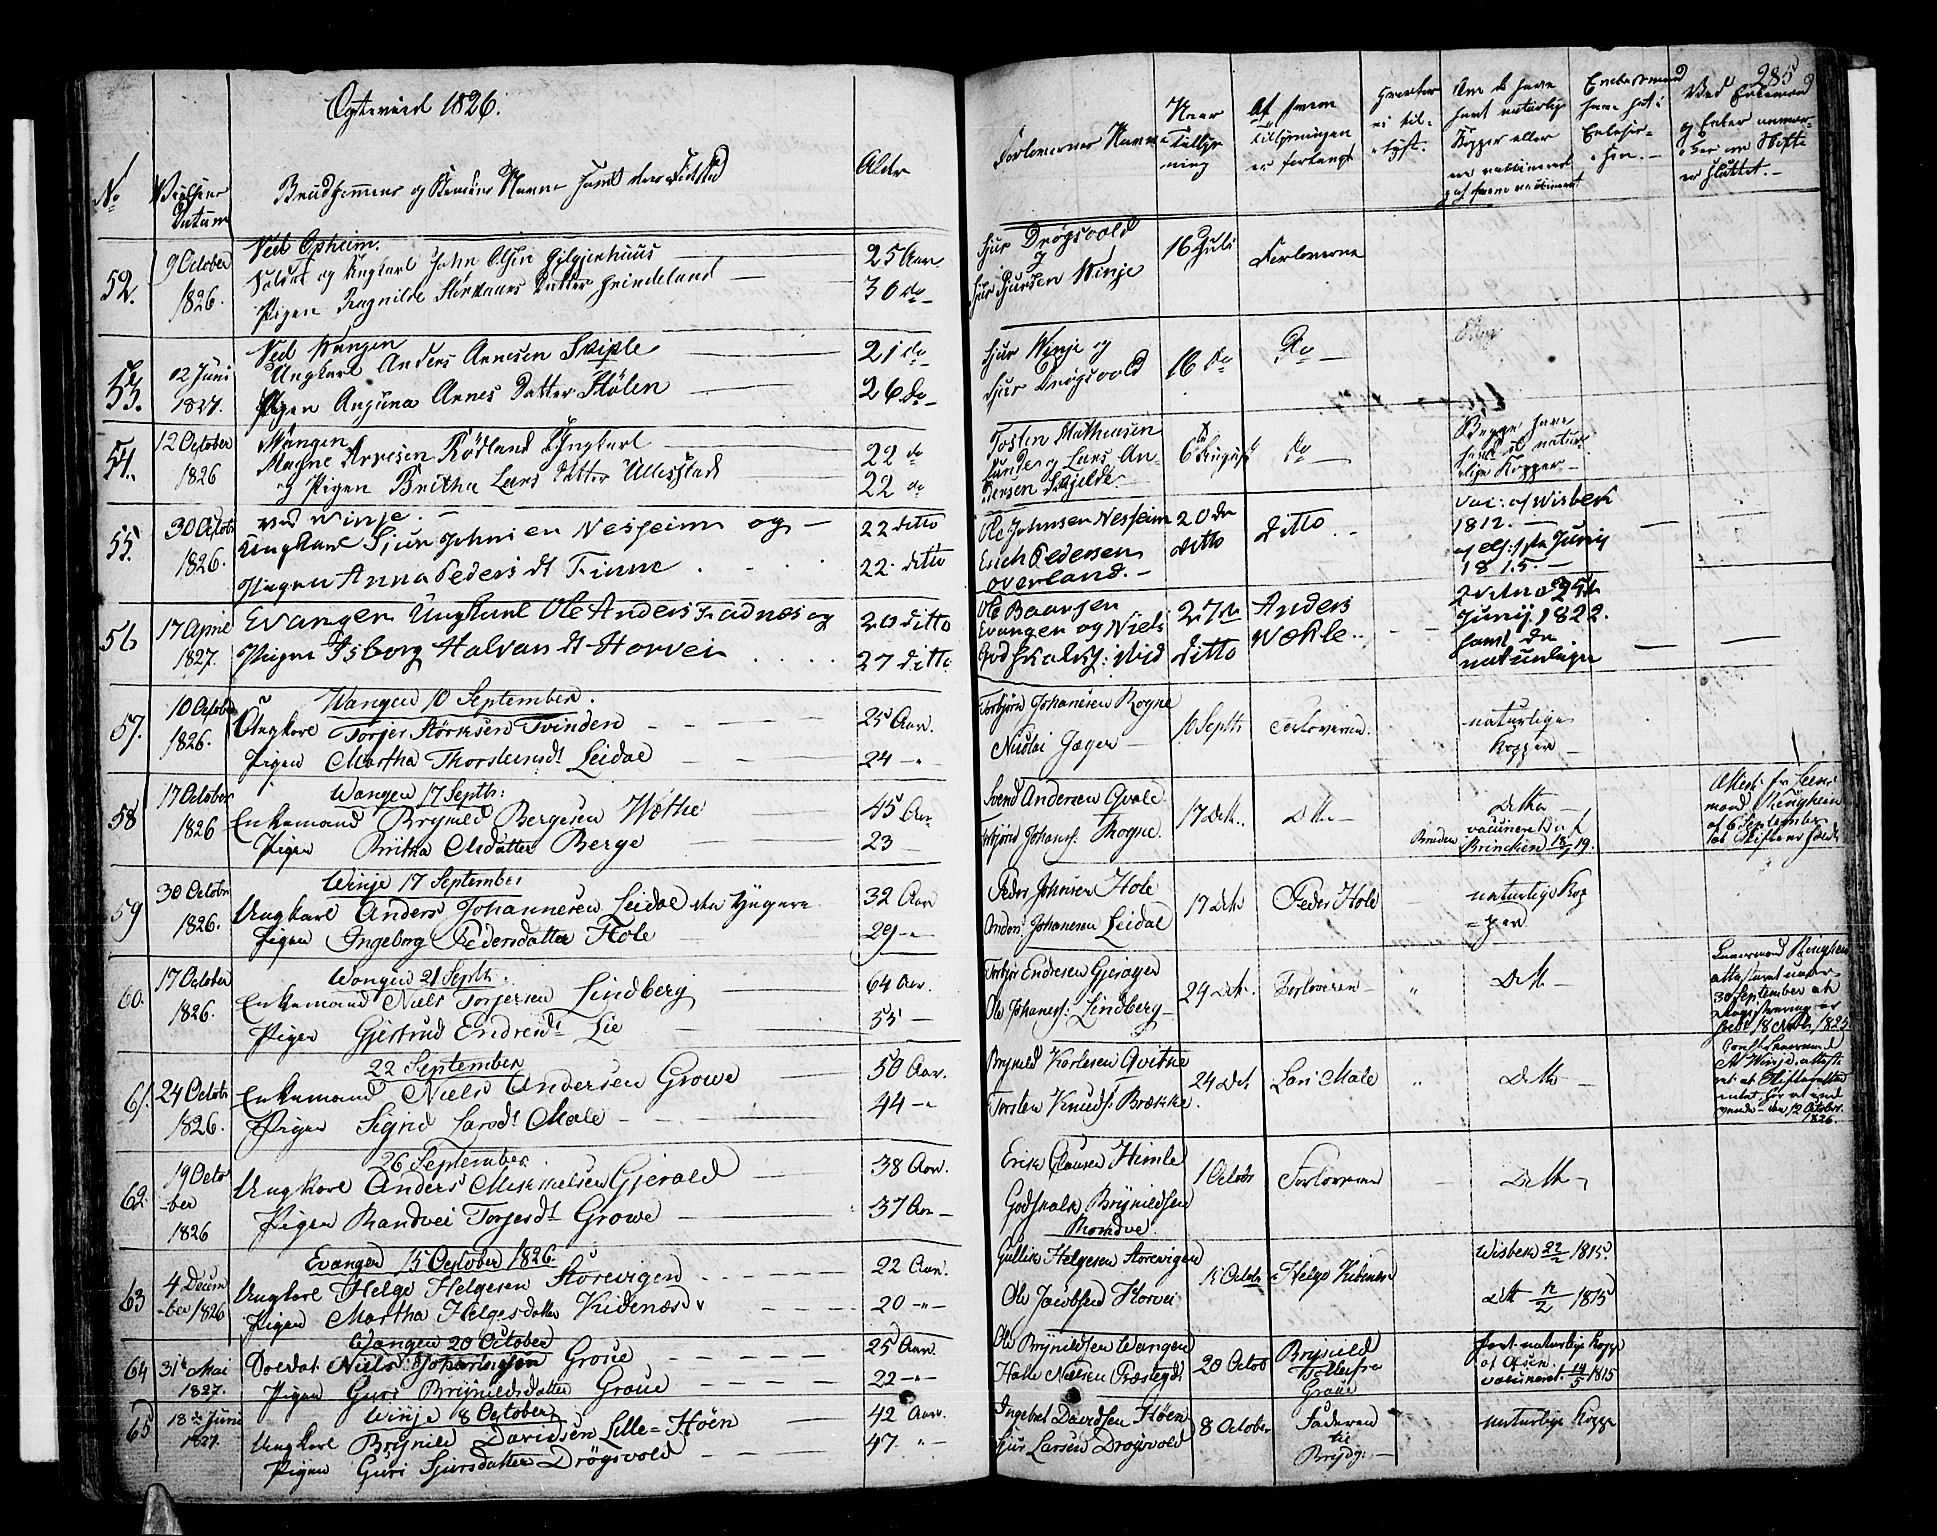 285
Ogtevied 1826.
No
Datum
Brudgommens og Navne samt deres
Alder
Forlovernes Navne
Naar
Tillys-
ning
Af hvem
Tillysningen
er forlangt
Om de have
havt naturlige
Kopper eller
ere vaccineret
af hvem vaccineret
Ved Enkemænd
og Enker
er sluttet. -
52.
9 October
1826.
Ved Opheim.
Soldat og Ungkarl John Olsen Gilgjerhuus
Pigen Ragnilde Størkaars Datter Grindeland
25 Aar
30 do
Sjur Drøgsvold
Sjur Sjursen Winje
16 Juli
Forloverne
53.
12 Juni
1827.
Ved Wangen
Ungkarl Anders Arnesen Skiple
Pigen Anguna Arnes Datter Stølen
21 do
26 do
Sjur Winje og
Sjur Drøgsvold
16 do
Do
54.
12 October
1826
Wangen
Magne Arvesen Rødland Ungkarl
og Pigen Britha Lars Datter Ullestad
22 do
22 do
Tosten Mathesen
Lars An-
dersen Skjelde
6 August
do
Begge have
havt de natur-
lige Kopper -
55.
30 Octobr
1826.
ved Winje. -
Ungkarl Sjur Johnsen Nesheim og -
Pigen Anna Peders dt Finne
22 ditto
22 ditto
Ole Johnsen Nesheim
Erich Pedersen
overland. -
20 de
ditto
ditto. -
vac: af Wisbech
1812. -
1815. -
56
17 April
1827.
Evanger Ungkarl Ole Anders Fadnes og
Pigen Isborg Halvars dt Horvei
20 ditto
27 ditto
Ole Baarsen
Evanger og Niels
27 de
ditto
Anders
Wæhle..
Junij 1822.
samt de
naturlige
57.
10 October
1826.
Wangen 10 September.
Ungkarl Torjer Størksen Tvinden
Pigen Martha Thorsteinsdt Leidal
25 Aar.
24 -"
Torbjørn Johanesen Rogne
Nicolai Jæger
10 Septbr
Forloveren.
naturlige
Kopper -
58
17 October
1826
Wangen 17 Septbr:
Enkemand Brynild Bergesen Wæthe
Pigen Britha Olsdatter Berge
45 Aar
23 -
Svend Andersen Qvale
Torbjørn Johans. Rogne.
17 Dette.
Dette -
Bruden
Dette -
vaccineret af
Brincken 18/7 19.
59
30 Octobr
1826.
Winje 17 September
Ungkarl Anders Johannesen Leidal den Yngere
Pigen Ingeborg Pedersdatter Hole
32 Aar
29 -"
Peder Johnsen Hole
Anders Johanesen Leidal
17 Dette
Peder Hole
naturlige Kop
=per
60.
17 October
1826.
Wangen 21 Septbr.
Enkemand Niels Torjersen Lindberg
Pigen Gjertrud Endresdt Lie
64 Aar.
55 -
Torbjør Endresen Gjerager
Ole Johaness: Lindberg
24 Dette.
Forloveren -
"
Dette -
Lensmand Ringheim
attesteret under
30 September at
Registrering er
skeet 18 Novbr 1825
61.
24 Octobr
1826.
22 September
Enkemand Niels Andersen Growe
Pigen Sigrid Larsdt Male -
50 Aar.
44 -"
Brynild Karlesen Qvitne
Torsten Knuds. Brække.
24 Det
Lars Male
"
Dette -
Const: Lensmand
N Winje atteste
ret at
vende - den 12 October
1826.
62.
19 Octo
-ber
1826
26 September
Ungkarl Anders Mikkelsen Gjerald
Pigen Randvei Torjersdt Growe
38 Aar.
37 Aar -
Erik Clausen Himle
Godskalk Brynildsen
Rokdve
1 Octobr
Forloveren
Dette -
63
4 Decem
-ber 1826
Evanger 15 October 1826.
Ungkarl Helge Helgesen Storevigen
Pigen Martha Helgesdatter Kidenæs
22 Aar.
20 -"-
Gullik Helgesen Storevigen
Ole Jacobsen Horvei
15 Octobr
Helge Kidenæs
Wisbeck 22/2 1815.
dett 12/2 1815
64
31te Mai
1827.
Wangen 20 October
Soldat Niels Johannesen Groue
Pigen Guri Brynildsdatter Groue
25 Aar
22 -"-
Ole Brynildsen Wangen
Halle Nielsen Præstegdt
20 Octob
Brynild
Tollefsen
Groue
havt naturlige Kopp
vaccineret 19/5 1815
65
18de Juni
1827.
Winje 8 October
Ungkarl Brynild Davidsen Lille=Høen
Pigen Guri Sjursdatter Drøgsvold -
42 Aar.
47. " -
Ingebret Davidsen Høen
Sjur Larsen Drøgsvold
8 October
Faderen
til
Brudg: -
naturlige Kopp